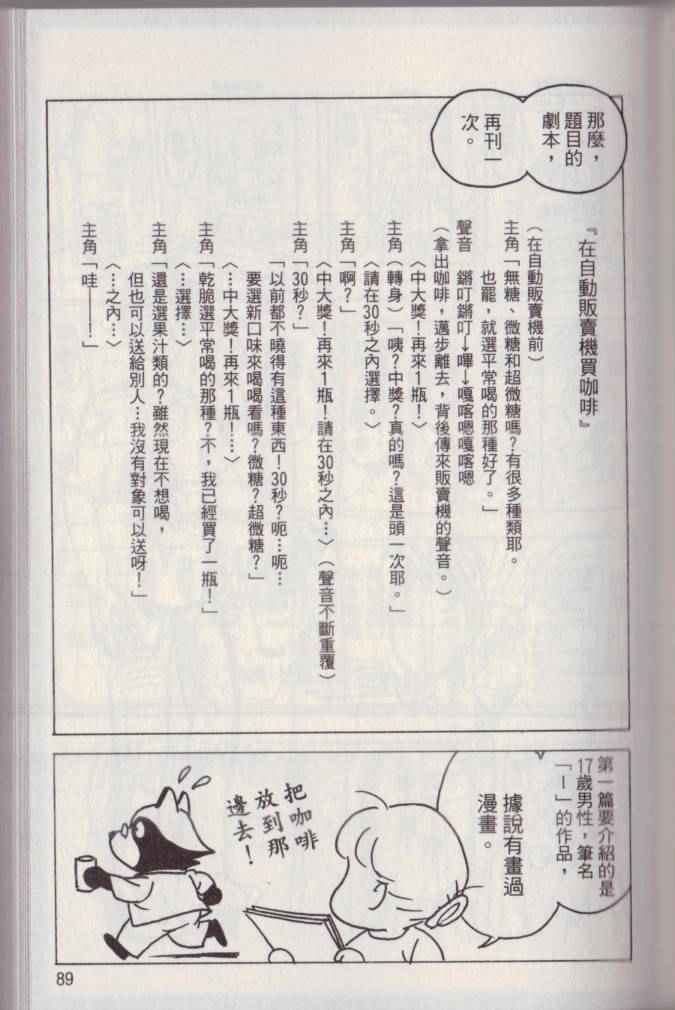 那麼，
題目的
劇本，
再刊一
次。
『在自動販賣機買咖啡』
（在自動販賣機前）
主角「無糖、微糖和超微糖嗎？有很多種類耶。
也罷，就選平常喝的那種好了。」
聲音　鏘叮鏘叮→嗶→嘎喀嗯嘎喀嗯
（拿出咖啡，邁步離去，背後傳來販賣機的聲音。）
〈中大獎！再來1瓶！〉
主角（轉身）「咦？中獎？真的嗎？這是頭一次耶。」
〈請在30秒之內選擇。〉
主角「啊？」
〈中大獎！再來1瓶！請在30秒之內…〉（聲音不斷重覆）
主角「30秒？」
「以前都不曉得有這種東西！30秒？呃…呃…
要選新口味來喝喝看嗎？微糖？超微糖？」
〈…中大獎！再來1瓶！…〉
主角「乾脆選平常喝的那種？不，我已經買了一瓶！」
〈…選擇…〉
主角「還是選果汁類的？雖然現在不想喝，
但也可以送給別人…我沒有對象可以送呀！」
〈…之內…〉
主角「哇——！」
第一篇要介紹的是
17歲男性，筆名
「I」的作品，
據說有畫過
漫畫。
把咖啡
放到那
邊去！
89